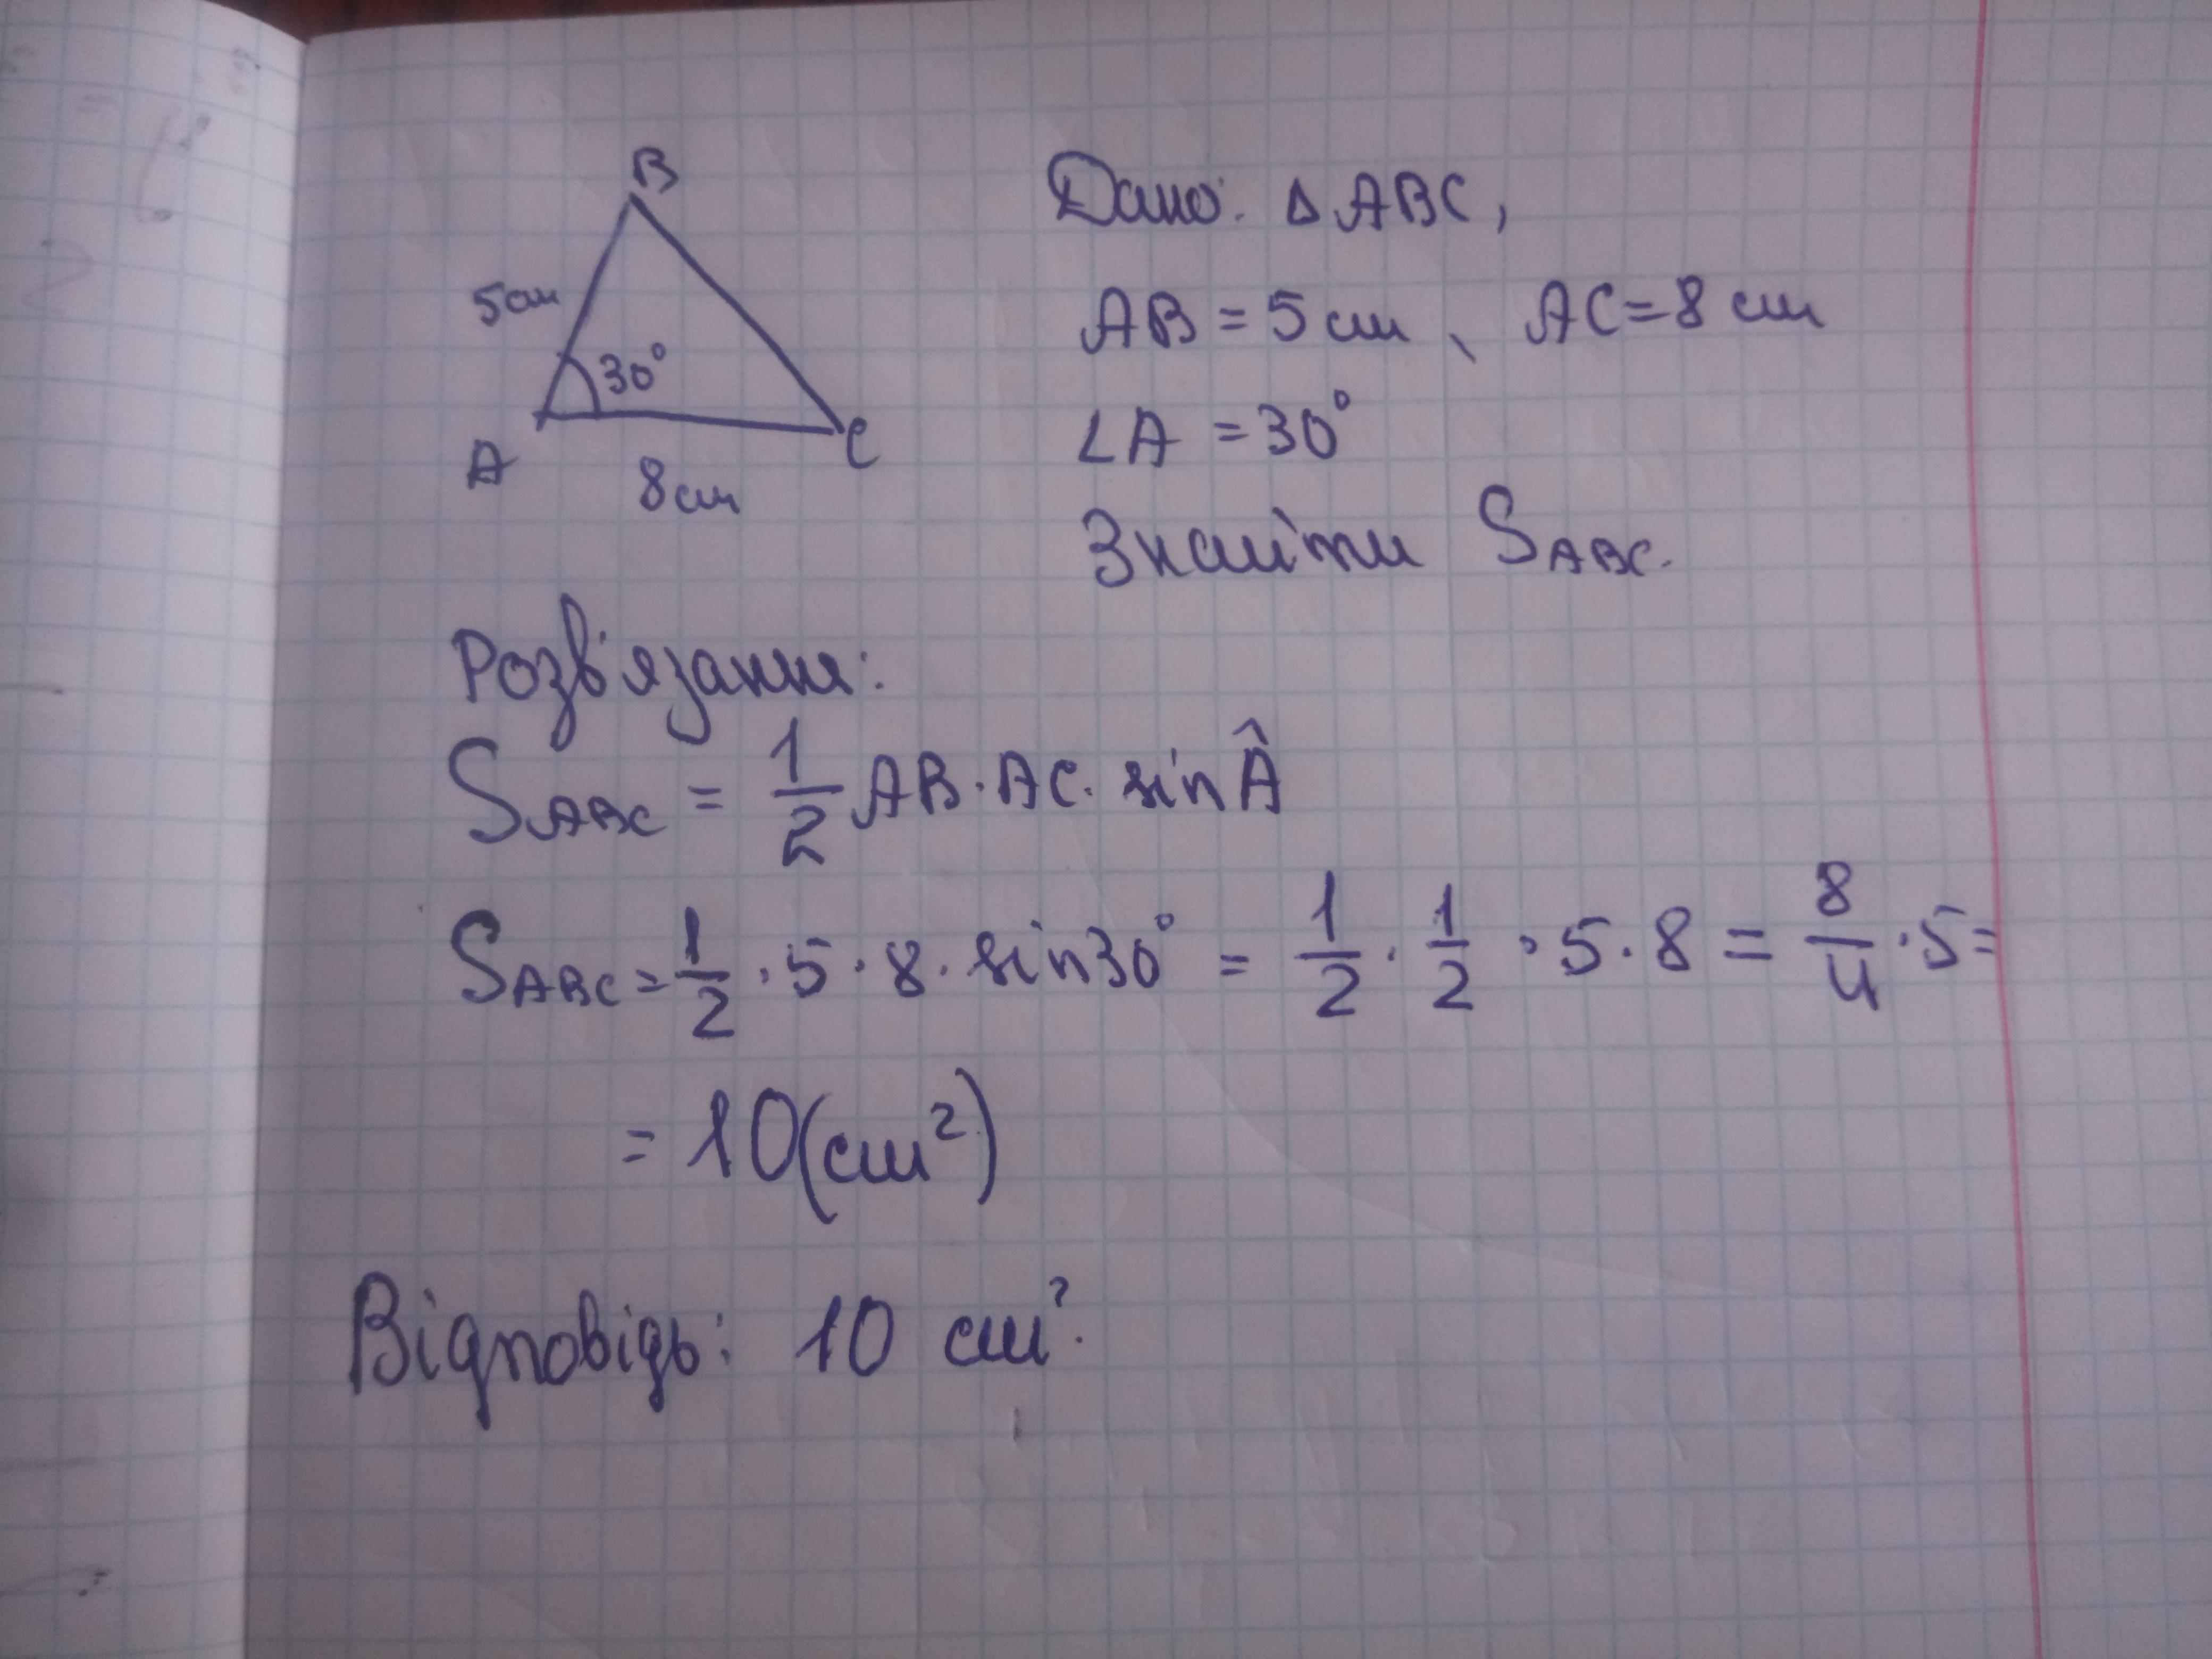 B
Дано: Δ ABC,
5см
AB = 5 см, AC = 8 см
30°
∠A = 30°
A
C
8см
Знайти S_ABC.
Розв'язання:
S_ABC = 1/2 AB · AC · sin Â
S_ABC = 1/2 · 5 · 8 · sin30° = 1/2 · 1/2 · 5 · 8 = 8/4 · 5 =
= 10(см²)
Відповідь: 10 см².